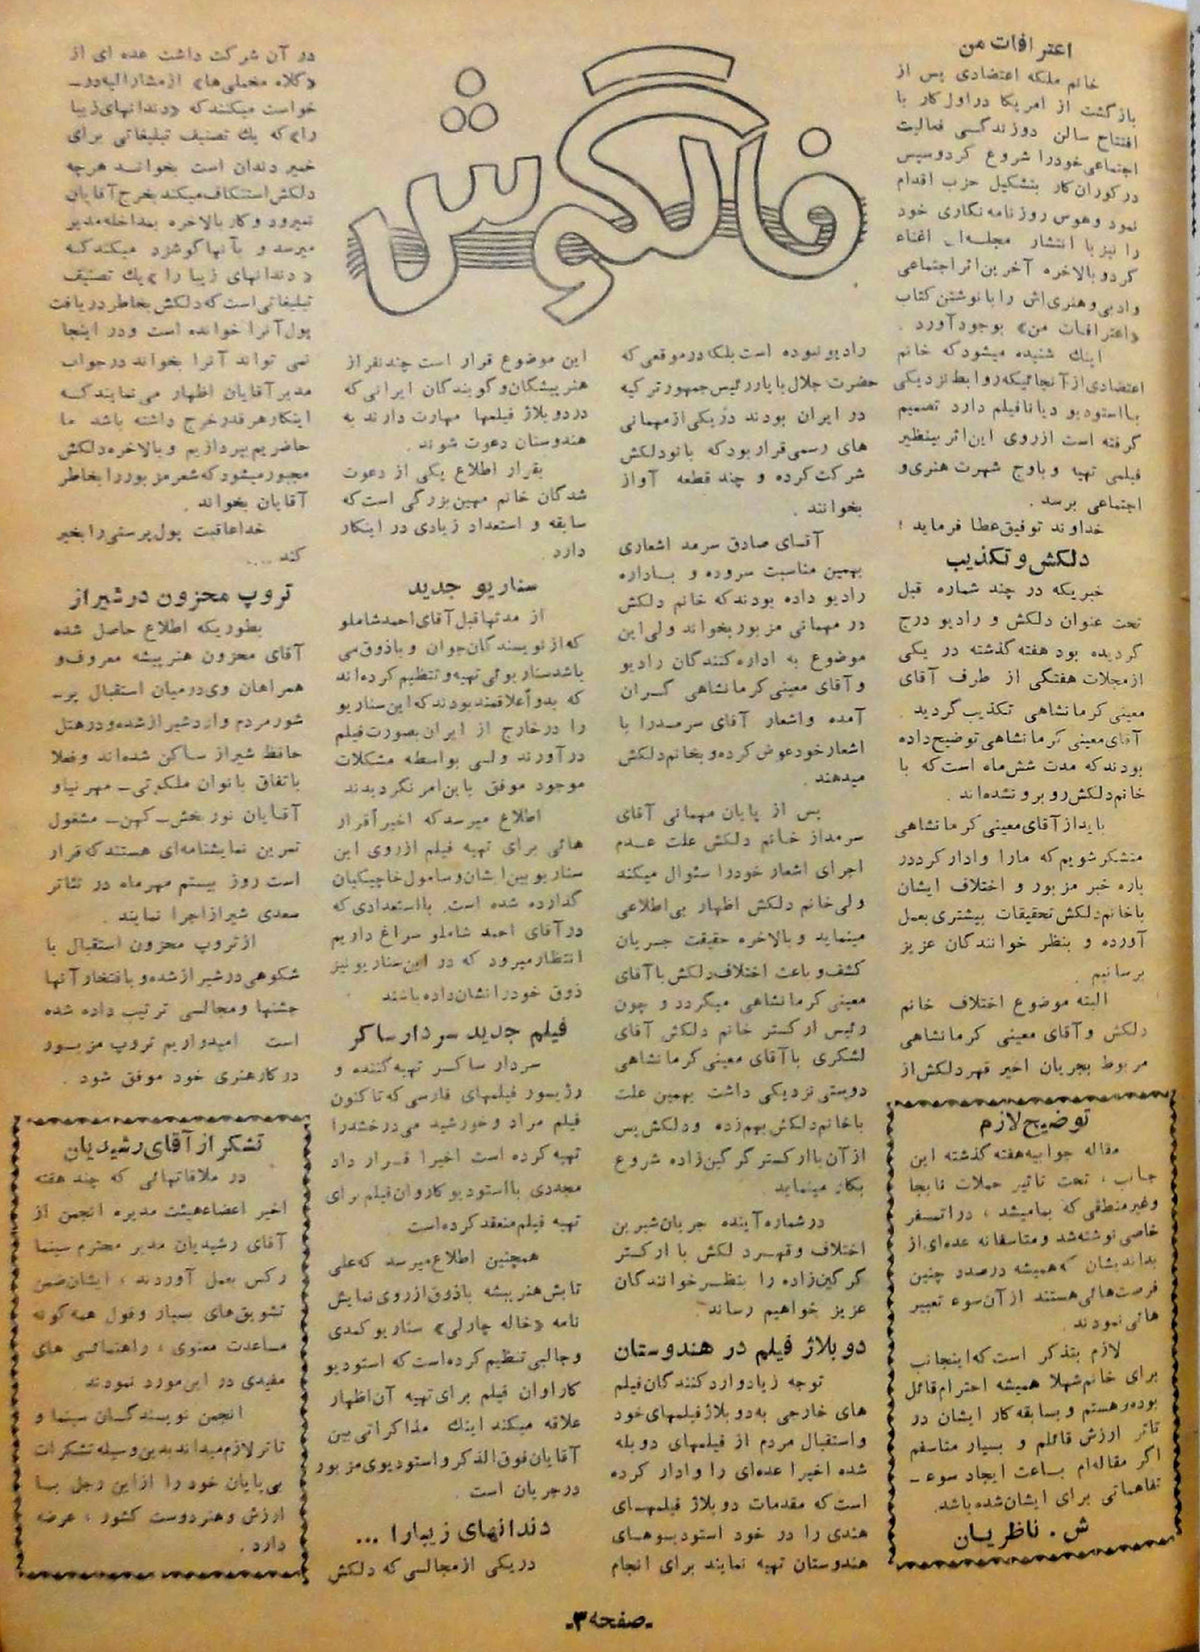 فالگوش
اعترافات من
خانم ملکه اعتضادی پس از
بازگشت از امریکا در اول کار با
افتتاح سالن دوزندگی فعالیت
اجتماعی خود را شروع کرد و سپس
در کوران کار بتشکیل حزب اقدام
نمود و هوس روزنامه نگاری خود
را نیز با انتشار مجله‌ای اغناء
کرد و بالاخره آخرین اثر اجتماعی
و ادبی و هنری‌اش را با نوشتن کتاب
«اعترافات من» بوجود آورد .
اینك شنیده میشود که خانم
اعتضادی از آنجائیکه روابط نزدیکی
با استودیو دیانا فیلم دارد تصمیم
گرفته است از روی این اثر بینظیر
فیلمی تهیه و باوج شهرت هنری و
اجتماعی برسد .
خداوند توفیق عطا فرماید !
دلکش و تکذیب
خبریکه در چند شماره قبل
تحت عنوان دلکش و رادیو درج
گردیده بود هفته گذشته در یکی
از مجلات هفتگی از طرف آقای
معینی کرمانشاهی تکذیب گردید .
آقای معینی کرمانشاهی توضیح داده
بودند که مدت شش ماه است که با
خانم دلکش روبرو نشده‌اند .
باید از آقای معینی کرمانشاهی
متشکر شویم که ما را وادار کرد در
باره خبر مزبور و اختلاف ایشان
با خانم دلکش تحقیقات بیشتری بعمل
آورده و بنظر خوانندگان عزیز
برسانیم .
البته موضوع اختلاف خانم
دلکش و آقای معینی کرمانشاهی
مربوط بجریان اخیر قهر دلکش از
توضیح لازم
مقاله جوابیه هفته گذشته این
جانب ، تحت تاثیر حملات نابجا
و غیر منطقی که بما میشد ، در اتمسفر
خاصی نوشته شد و متاسفانه عده‌ای از
بداندیشان که همیشه در صدد چنین
فرصت‌هائی هستند از آن سوء تعبیر
هائی نمودند .
لازم بتذکر است که اینجانب
برای خانم شهلا همیشه احترام قائل
بوده و هستم و بسابقه کار ایشان در
تاتر ارزش قائلم و بسیار متاسفم
اگر مقاله‌ام باعث ایجاد سوء -
تفاهماتی برای ایشان شده باشد.
ش . ناظریان
رادیو نبوده است بلکه در موقعی که
حضرت جلال بایار رئیس جمهور ترکیه
در ایران بودند در یکی از مهمانی
های رسمی قرار بود که بانو دلکش
شرکت کرده و چند قطعه آواز
بخوانند .
آقای صادق سرمد اشعاری
بهمین مناسبت سروده و باداره
رادیو داده بودند که خانم دلکش
در مهمانی مزبور بخواند ولی این
موضوع به اداره کنندگان رادیو
و آقای معینی کرمانشاهی گران
آمده و اشعار آقای سرمد را با
اشعار خود عوض کرده و بخانم دلکش
میدهند .
پس از پایان مهمانی آقای
سرمد از خانم دلکش علت عدم
اجرای اشعار خود را سئوال میکند
ولی خانم دلکش اظهار بی‌اطلاعی
مینماید و بالاخره حقیقت جریان
کشف و باعث اختلاف دلکش با آقای
معینی کرمانشاهی میگردد و چون
رئیس ارکستر خانم دلکش آقای
لشکری با آقای معینی کرمانشاهی
دوستی نزدیکی داشت بهمین علت
با خانم دلکش بهم زده و دلکش پس
از آن با ارکستر گرگین‌زاده شروع
بکار مینماید .
در شماره آینده جریان شیرین
اختلاف و قهر دلکش با ارکستر
گرگین‌زاده را بنظر خوانندگان
عزیز خواهیم رساند .
دوبلاژ فیلم در هندوستان
توجه زیاد وارد کنندگان فیلم
های خارجی به دوبلاژ فیلمهای خود
و استقبال مردم از فیلمهای دوبله
شده اخیرا عده‌ای را وادار کرده
است که مقدمات دوبلاژ فیلمهای
هندی را در خود استودیوهای
هندوستان تهیه نمایند برای انجام
این موضوع قرار است چند نفر از
هنرپیشگان و گویندگان ایرانی که
در دوبلاژ فیلمها مهارت دارند به
هندوستان دعوت شوند .
بقرار اطلاع یکی از دعوت
شدگان خانم مهین بزرگی است که
سابقه و استعداد زیادی در اینکار
دارد .
سناریو جدید
از مدتها قبل آقای احمد شاملو
که از نویسندگان جوان و با ذوق می
باشد سناریوئی تهیه و تنظیم کرده‌اند
که بدوا علاقمند بودند که این سناریو
را در خارج از ایران بصورت فیلم
در آورند ولی بواسطه مشکلات
موجود موفق باین امر نگردیدند
اطلاع میرسد که اخیرا قرار
هائی برای تهیه فیلم از روی این
سناریو بین ایشان و سامول خاچیکیان
گذارده شده است. با استعدادی که
در آقای احمد شاملو سراغ داریم
انتظار میرود که در این سناریو نیز
ذوق خود را نشان داده باشند
فیلم جدید سردار ساکر
سردار ساکر تهیه کننده و
رژیسور فیلمهای فارسی که تا کنون
فیلم مراد و خورشید می‌درخشد را
تهیه کرده است اخیرا قرار داد
مجددی با استودیو کاروان فیلم برای
تهیه فیلم منعقد کرده است
همچنین اطلاع میرسد که علی
تابش هنرپیشه با ذوق از روی نمایش
نامه «خاله چارلی» سناریو کمدی
و جالبی تنظیم کرده است که استودیو
کاراوان فیلم برای تهیه آن اظهار
علاقه میکند اینك مذاکراتی بین
آقایان فوق‌الذکر و استودیوی مزبور
در جریان است .
دندانهای زیبا را ...
در یکی از مجالسی که دلکش
در آن شرکت داشت عده ای از
«کلاه مخملی‌ها» از مشارالیه در-
خواست میکنند که «دندانهای زیبا
را» که یك تصنیف تبلیغاتی برای
خمیر دندان است بخواند هر چه
دلکش استنکاف میکند بخرج آقایان
نمیرود و کار بالاخره بمداخله مدیر
میرسد و بآنها گوشزد میکند که
«دندانهای زیبا را» یك تصنیف
تبلیغاتی است که دلکش بخاطر دریافت
پول آنرا خوانده است و در اینجا
نمی تواند آنرا بخواند در جواب
مدیر آقایان اظهار می نمایند که
اینکار هر قدر خرج داشته باشد ما
حاضریم بپردازیم و بالاخره دلکش
مجبور میشود که شعر مزبور را بخاطر
آقایان بخواند .
خدا عاقبت پول پرستی را بخیر
کند ....
تروپ محزون در شیراز
بطوریکه اطلاع حاصل شده
آقای محزون هنرپیشه معروف و
همراهان وی در میان استقبال پر-
شور مردم وارد شیراز شده و در هتل
حافظ شیراز ساکن شده‌اند و فعلا
باتفاق بانوان ملکوتی - مهرنیا و
آقایان نوربخش - کهن - مشغول
تمرین نمایشنامه‌ای هستند که قرار
است روز بیستم مهر ماه در تئاتر
سعدی شیراز اجرا نمایند .
از تروپ محزون استقبال با
شکوهی در شیراز شده و بافتخار آنها
جشنها و مجالسی ترتیب داده شده
است امیدواریم تروپ مزبور
در کار هنری خود موفق شود .
تشکر از آقای رشیدیان
در ملاقاتهائی که چند هفته
اخیر اعضاء هیئت مدیره انجمن از
آقای رشیدیان مدیر محترم سینما
رکس بعمل آوردند ، ایشان ضمن
تشویق‌های بسیار و قول همه گونه
مساعدت معنوی ، راهنمائی های
مفیدی در این مورد نمودند .
انجمن نویسندگان سینما و
تاتر لازم میداند بدین وسیله تشکرات
بی‌پایان خود را از این رجل با
ارزش و هنر دوست کشور ، عرضه
دارد .
-صفحه ۳-